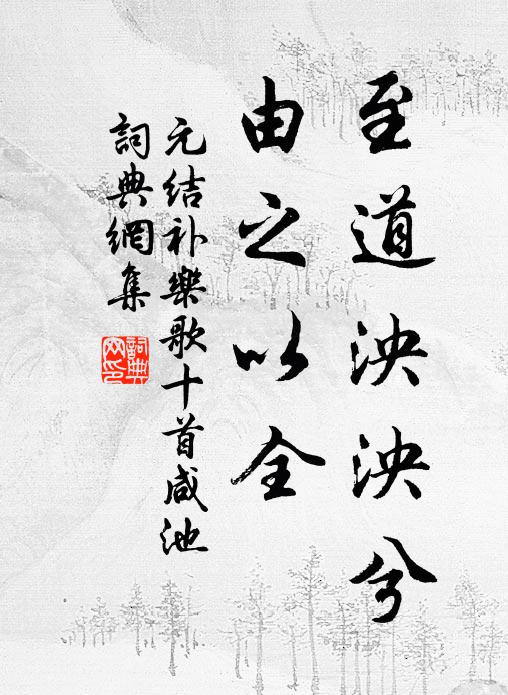 至道泱泱兮
由之以全
元结补樂歌十首咸池
詞典網集
詞典網印